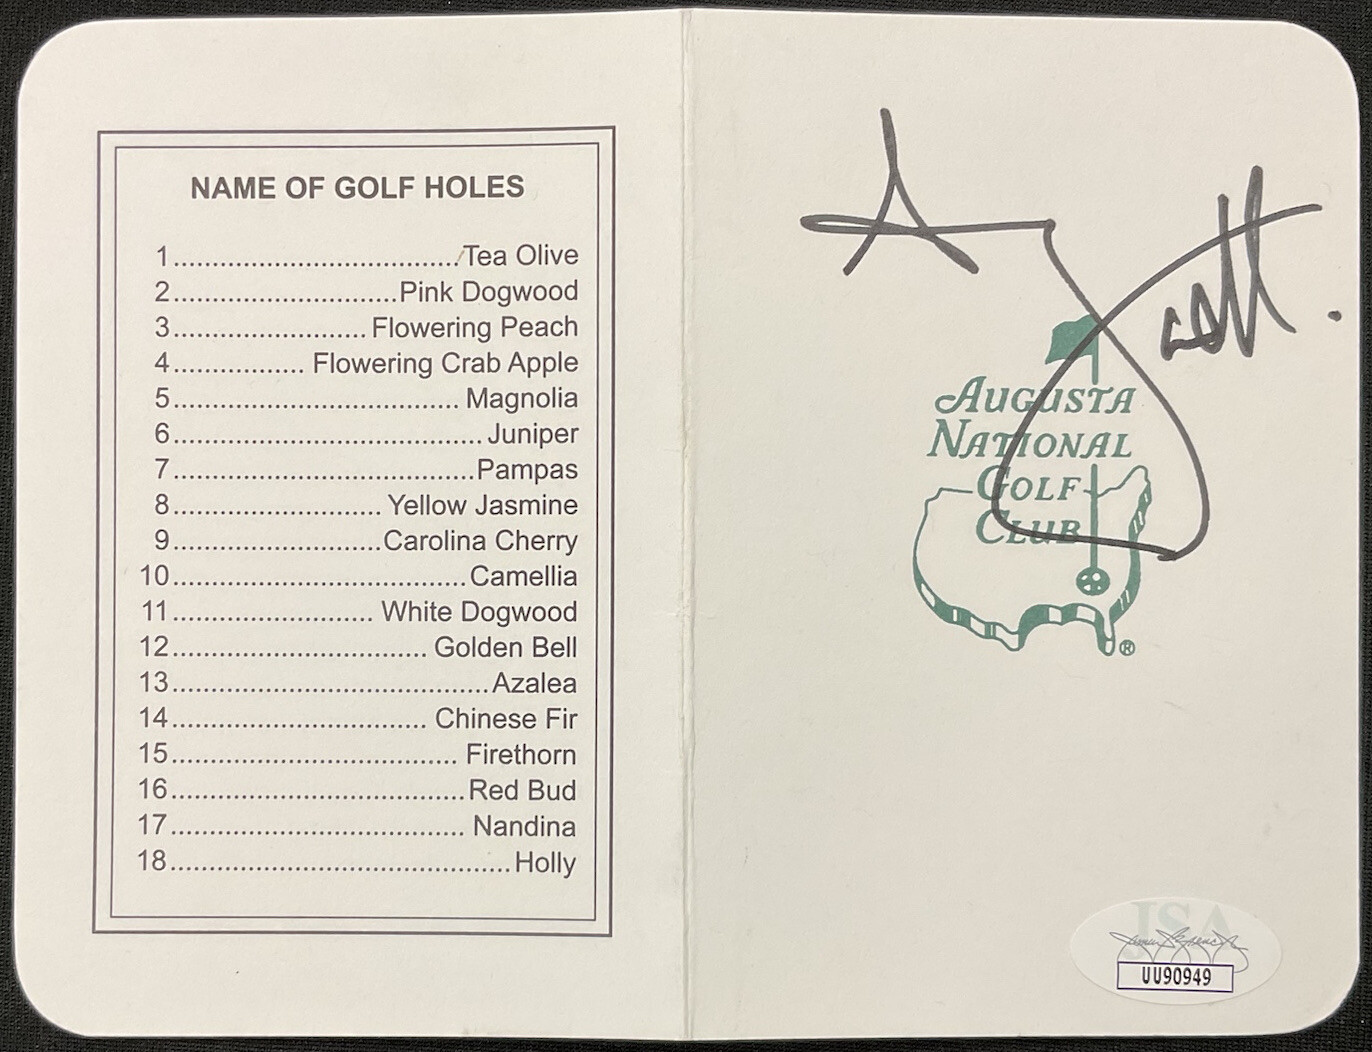 NAME OF GOLF HOLES
1..................................Tea Olive
2..........................Pink Dogwood
3....................... Flowering Peach
4............... Flowering Crab Apple
5.................................. Magnolia
6.....................................Juniper
7....................................Pampas
8......................... Yellow Jasmine
9.........................Carolina Cherry
10...................................Camellia
11........................ White Dogwood
12.............................. Golden Bell
13......................................Azalea
14.............................. Chinese Fir
15.................................. Firethorn
16...................................Red Bud
17................................... Nandina
18.........................................Holly
A Scott.
AUGUSTA
NATIONAL
GOLF
CLUB
®
JSA
UU90949